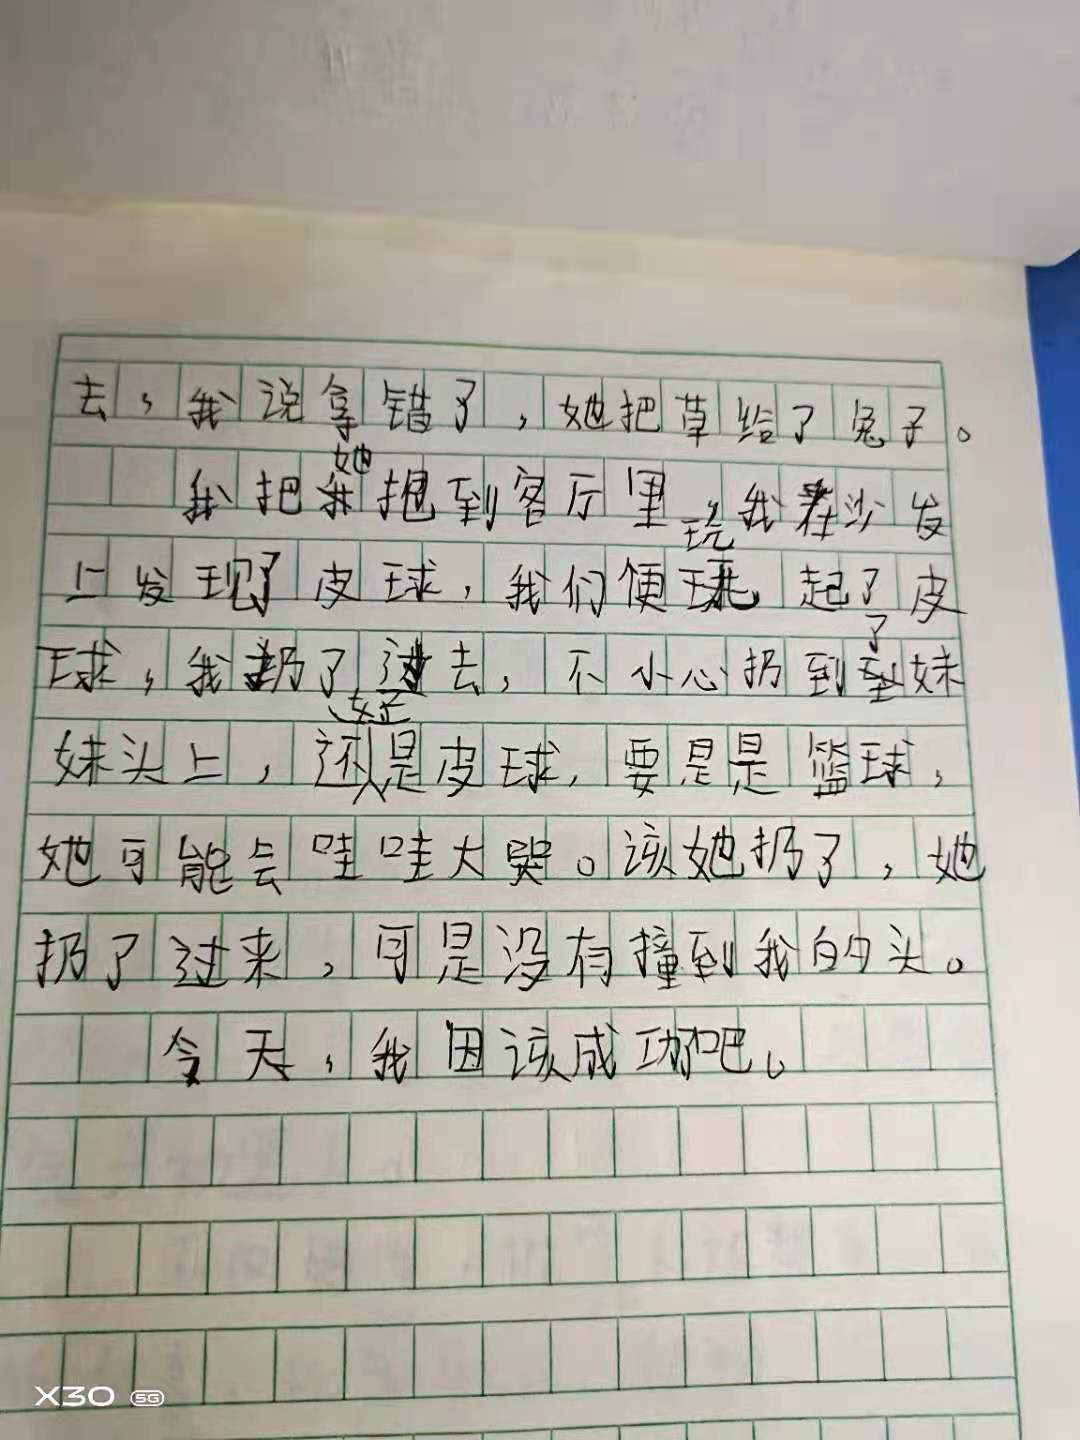 去，我说拿错了，她把草给了兔子。
我把她抱到客厅里玩我在沙发
上发现了皮球，我们便玩起了皮
球，我扔了过去，不小心扔到了妹
妹头上，还好是皮球，要是是篮球，
她可能会哇哇大哭。该她扔了，她
扔了过来，可是没有撞到我的头。
今天，我因该成功吧。
X30 5G